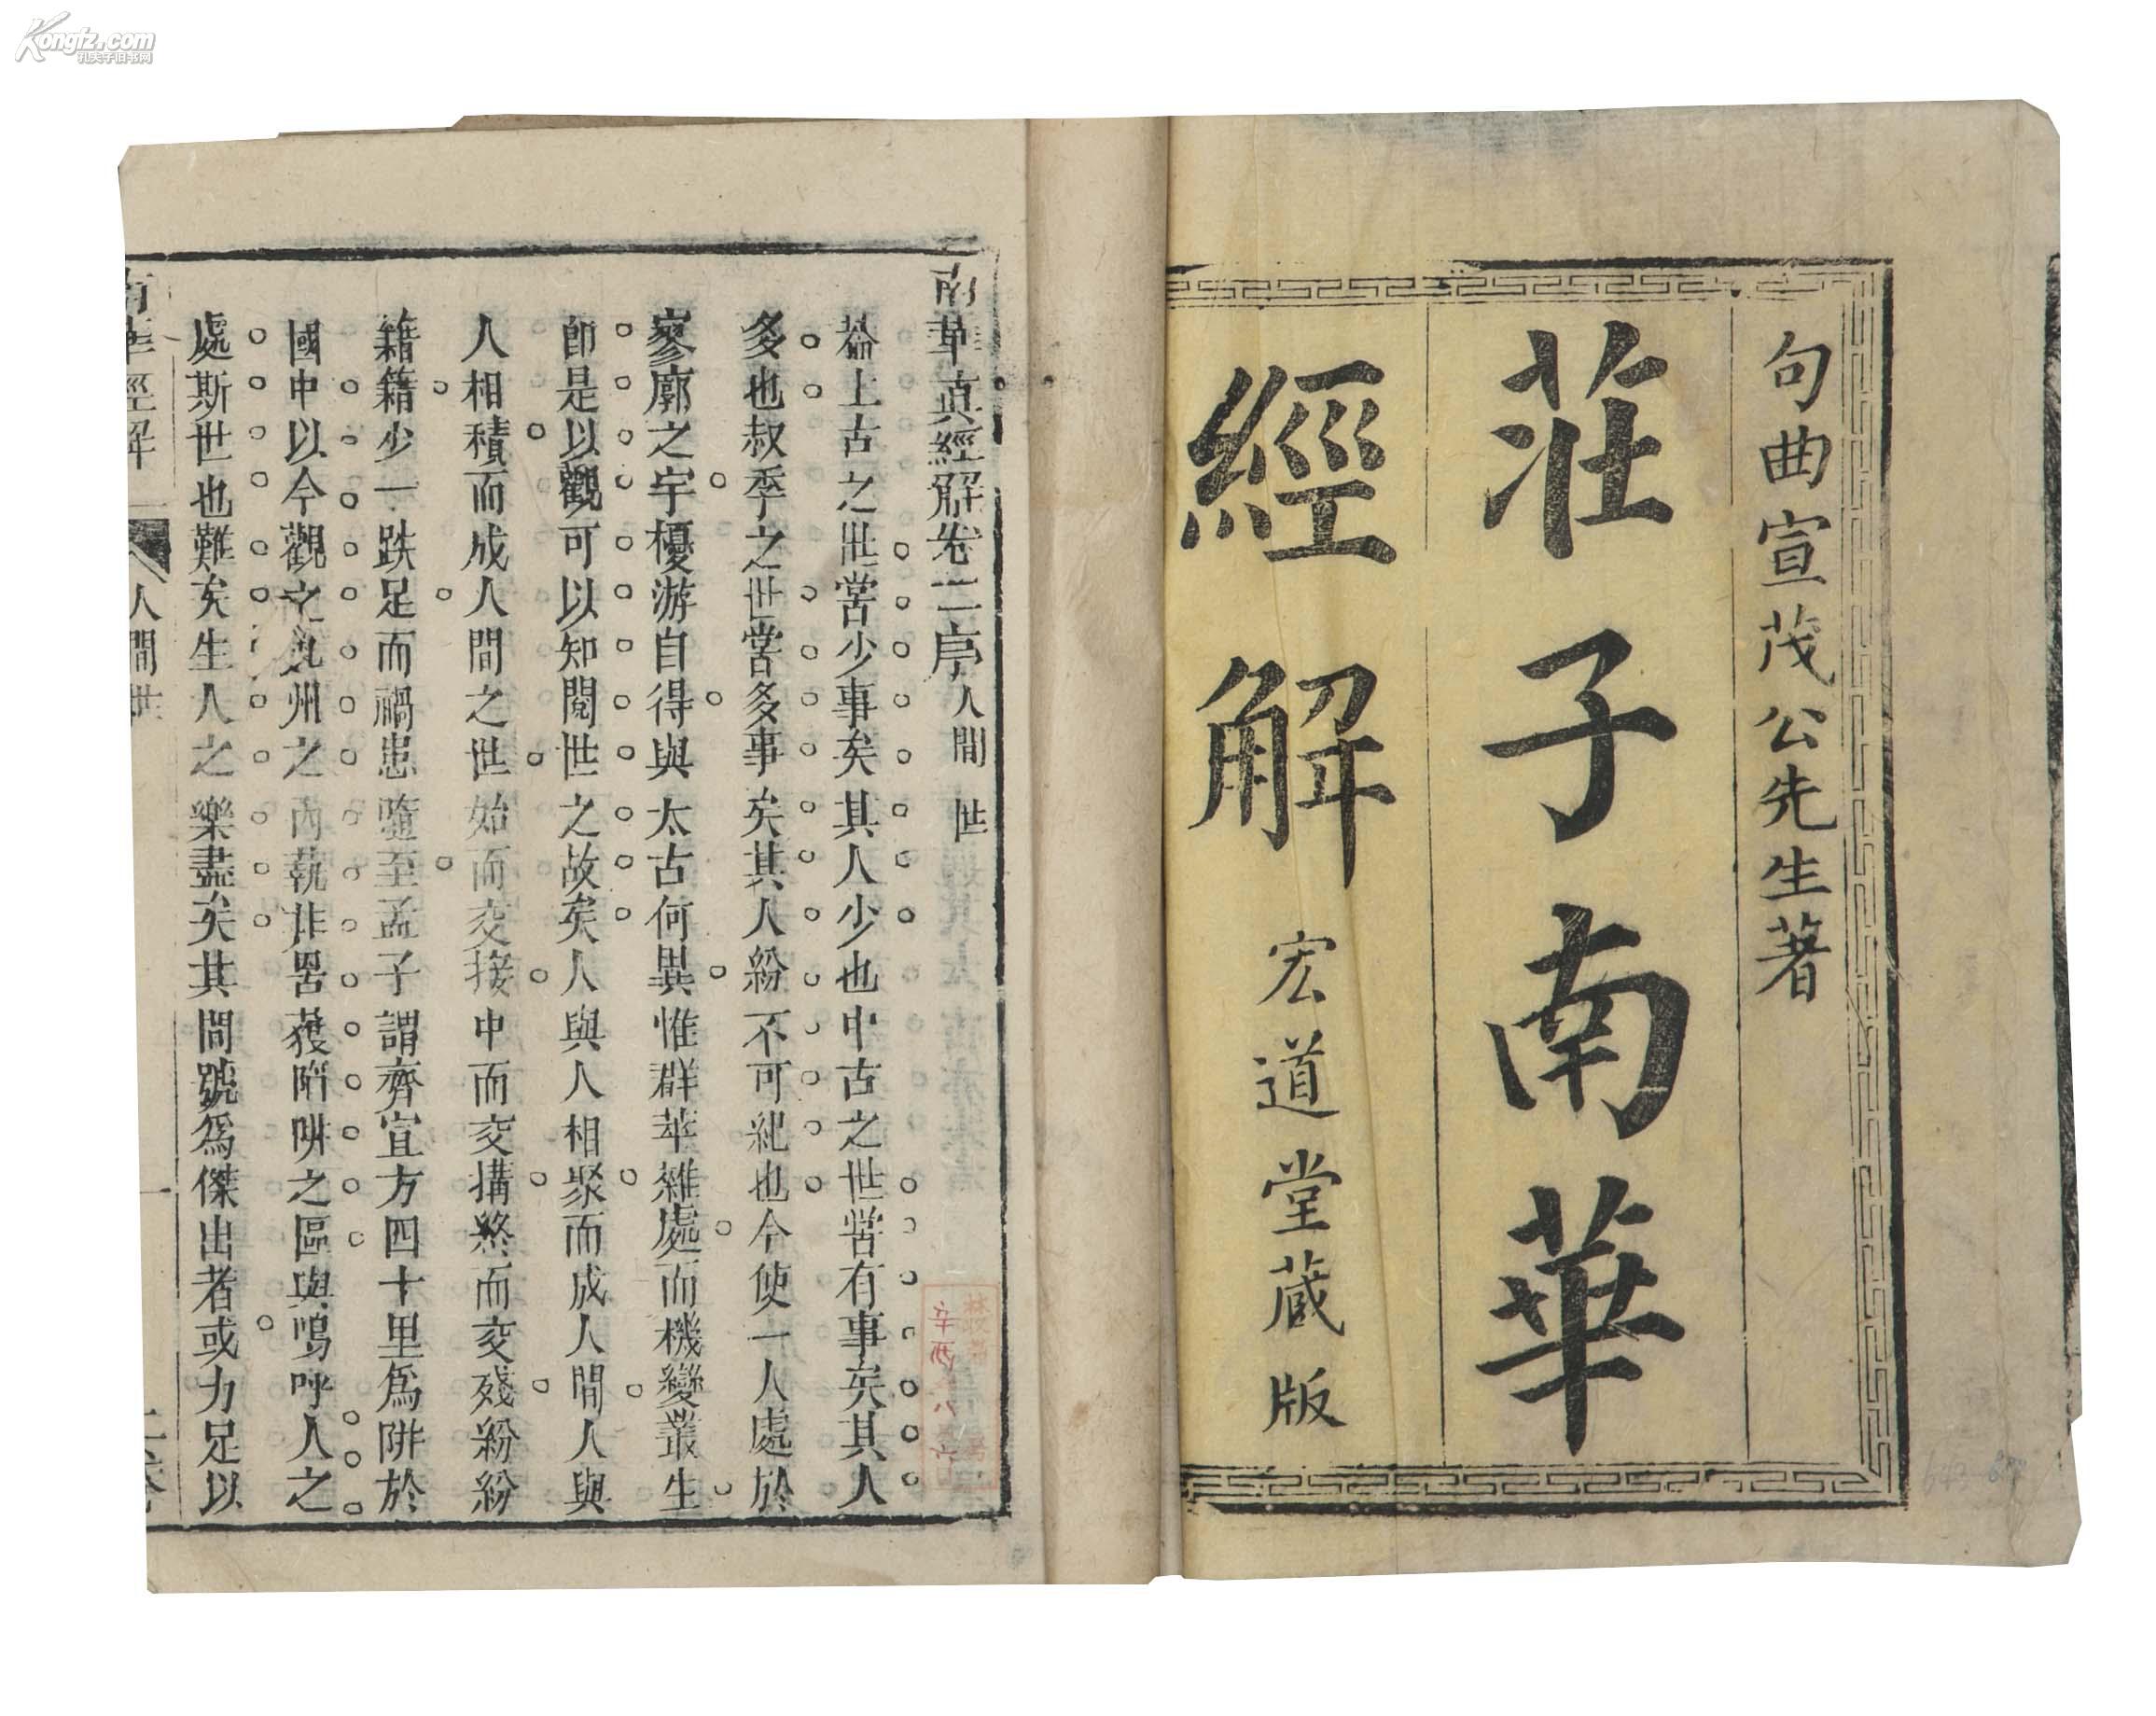 句曲宣茂公先生著
莊子南華
經解
宏道堂蔵版
南華真經解卷二序人間世
葢上古之世嘗少事矣其人少也中古之世嘗有事矣其人
多也叔季之世嘗多事矣其人紛不可紀也今使一人處於
寥廓之宇優游自得與太古何異惟群萃雜處而機變叢生
即是以觀可以知閱世之故矣人與人相聚而成人間人與
人相積而成人間之世始而交接中而交搆終而交殘紛紛
籍籍少一跌足而禍患隨至孟子謂齊宣方四十里爲阱於
國中以今觀之九州之內孰非罟擭陷阱之區與嗚呼人之
處斯世也難矣生人之樂盡矣其間號爲傑出者或力足以
南華經解
人間世
一
辛酉
Kongfz.com
孔夫子旧书网